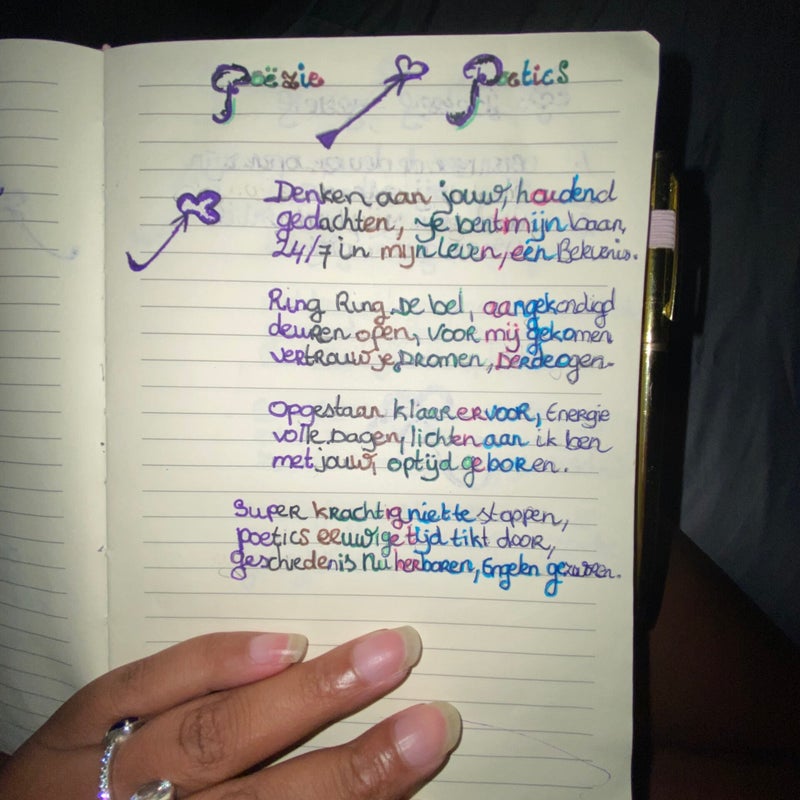 Poëzie Poetics
Denken aan jouw, houdend
gedachten, Je bent mijn baan,
24/7 in mijn leven, eén
Ring Ring De bel, aangekondigd
deuren open, voor mij gekomen
vertrouw je, Dromen,
Opgestaan klaar ervoor, Energie
volle Dagen, lichten aan ik ben
met jouw, optijd geboren.
Super krachtig niet te stoppen,
poetics eeuwige tijd tikt door,
geschiedenis nu herboren, Engelen